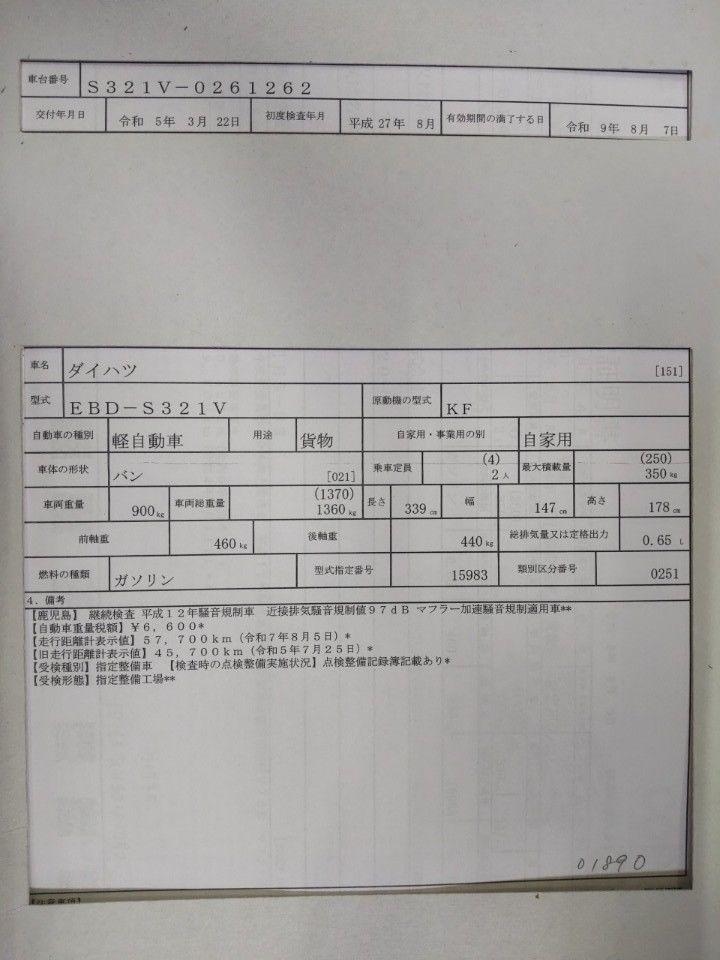 車台番号 S321V-0261262
交付年月日 令和 5年 3月 22日 初度検査年月 平成 27年 8月 有効期間の満了する日 令和 9年 8月 7日
車名 ダイハツ [151]
型式 EBD-S321V 原動機の型式 KF
自動車の種別 軽自動車 用途 貨物 自家用・事業用の別 自家用
車体の形状 バン [021] 乗車定員 (4) 2人 最大積載量 (250) 350kg
車両重量 900kg 車両総重量 (1370) 1360kg 長さ 339cm 幅 147cm 高さ 178cm
前軸重 460kg 後軸重 440kg 総排気量又は定格出力 0.65 L
燃料の種類 ガソリン 型式指定番号 15983 類別区分番号 0251
4. 備考
【鹿児島】 継続検査 平成12年騒音規制車 近接排気騒音規制値97dB マフラー加速騒音規制適用車**
【自動車重量税額】¥6,600*
【走行距離計表示値】57,700km(令和7年8月5日)*
【旧走行距離計表示値】45,700km(令和5年7月25日)*
【受検種別】指定整備車 【検査時の点検整備実施状況】点検整備記録簿記載あり*
【受検形態】指定整備工場**
01890